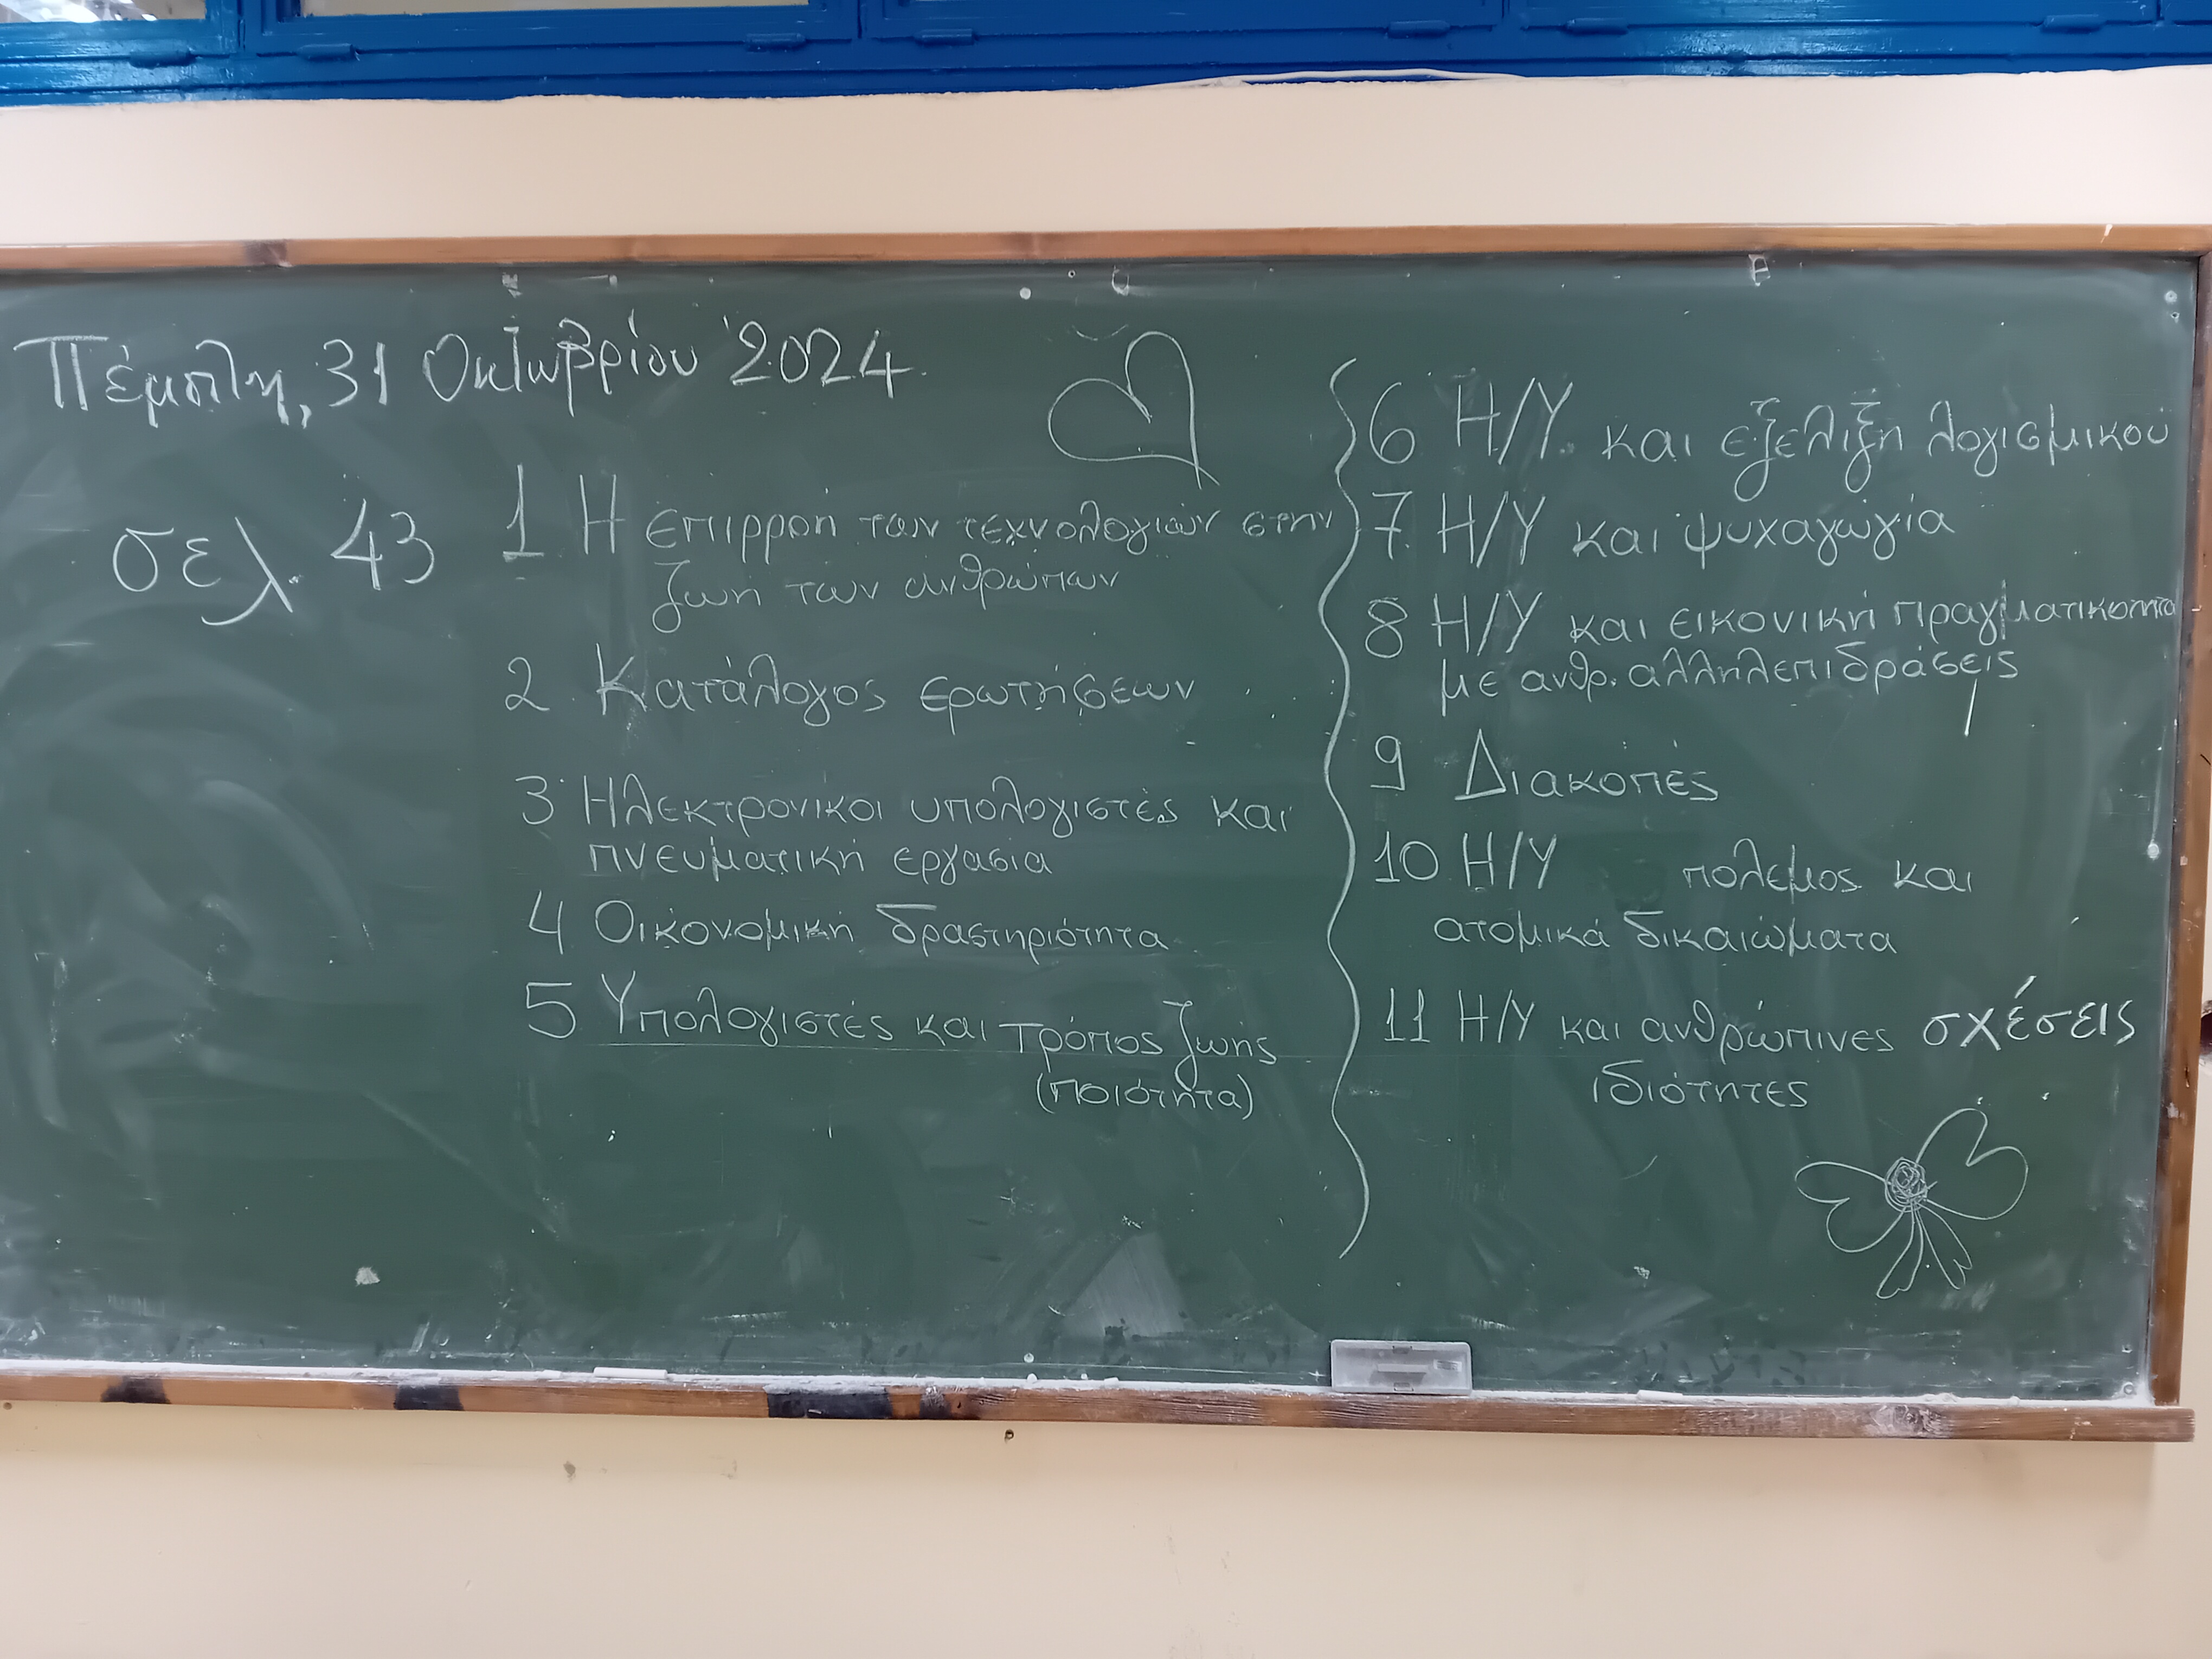 Πέμπτη, 31 Οκτωβρίου 2024
σελ. 43
1 Η επιρροή των τεχνολογιών στην
ζωή των ανθρώπων
2 Κατάλογος ερωτήσεων
3 Ηλεκτρονικοι υπολογιστές και
πνευματική εργασια
4 Οικονομική δραστηριότητα
5 Υπολογιστές και τρόπος ζωής
(ποιότητα)
6 Η/Υ. και εξελιξη λογισμικού
7. Η/Υ και ψυχαγωγία
8 Η/Υ και εικονική πραγματικοτητα
με ανθρ. αλληλεπιδράσεις
9 Διακοπές
10 Η/Υ πολεμος και
ατομικά δικαιώματα
11 Η/Υ και ανθρώπινες σχέσεις
ιδιότητες